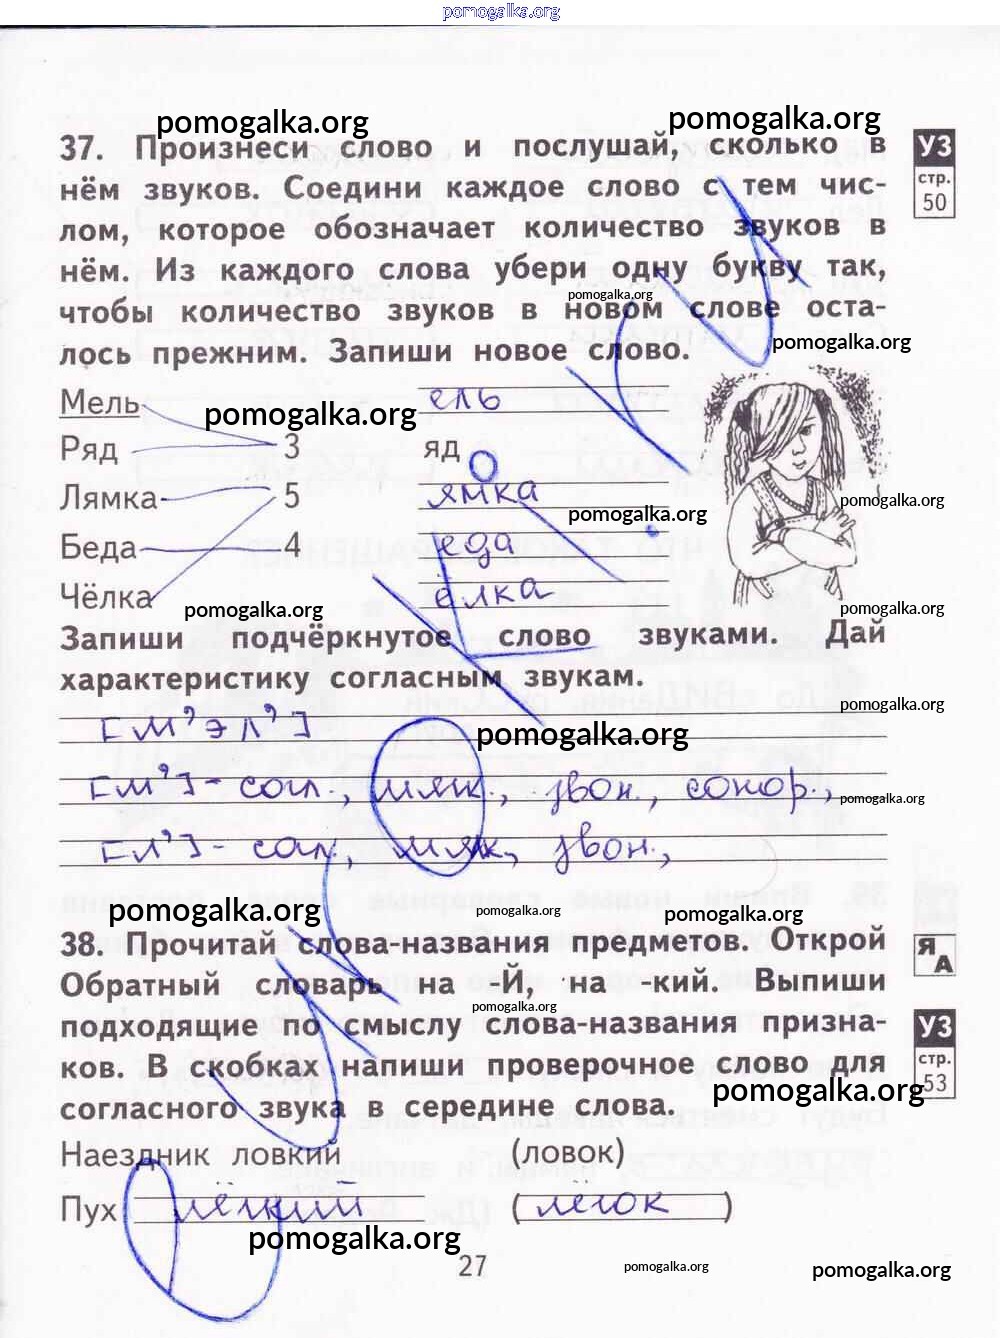 pomogalka.org
pomogalka.org pomogalka.org
37. Произнеси слово и послушай, сколько в
нём звуков. Соедини каждое слово с тем чис-
лом, которое обозначает количество звуков в
нём. Из каждого слова убери одну букву так,
pomogalka.org
чтобы количество звуков в новом слове оста-
лось прежним. Запиши новое слово.
pomogalka.org
УЗ
стр.
50
Мель ель
pomogalka.org
Ряд 3 яд
Лямка 5 ямка
pomogalka.org pomogalka.org
Беда 4 еда
Чёлка ёлка
pomogalka.org pomogalka.org
Запиши подчёркнутое слово звуками. Дай
характеристику согласным звукам.
pomogalka.org
[м’эл’]
pomogalka.org
[м’]- согл., мяк., звон., сонор.,
pomogalka.org
[л’]- сол., мяк., звон.,
pomogalka.org pomogalka.org pomogalka.org
38. Прочитай слова-названия предметов. Открой
Обратный словарь на -Й, на -кий. Выпиши
pomogalka.org
подходящие по смыслу слова-названия призна-
ков. В скобках напиши проверочное слово для
pomogalka.org
согласного звука в середине слова.
Я
А
УЗ
стр.
53
Наездник ловкий (ловок)
Пух лёгкий (лёгок)
pomogalka.org
27
pomogalka.org pomogalka.org